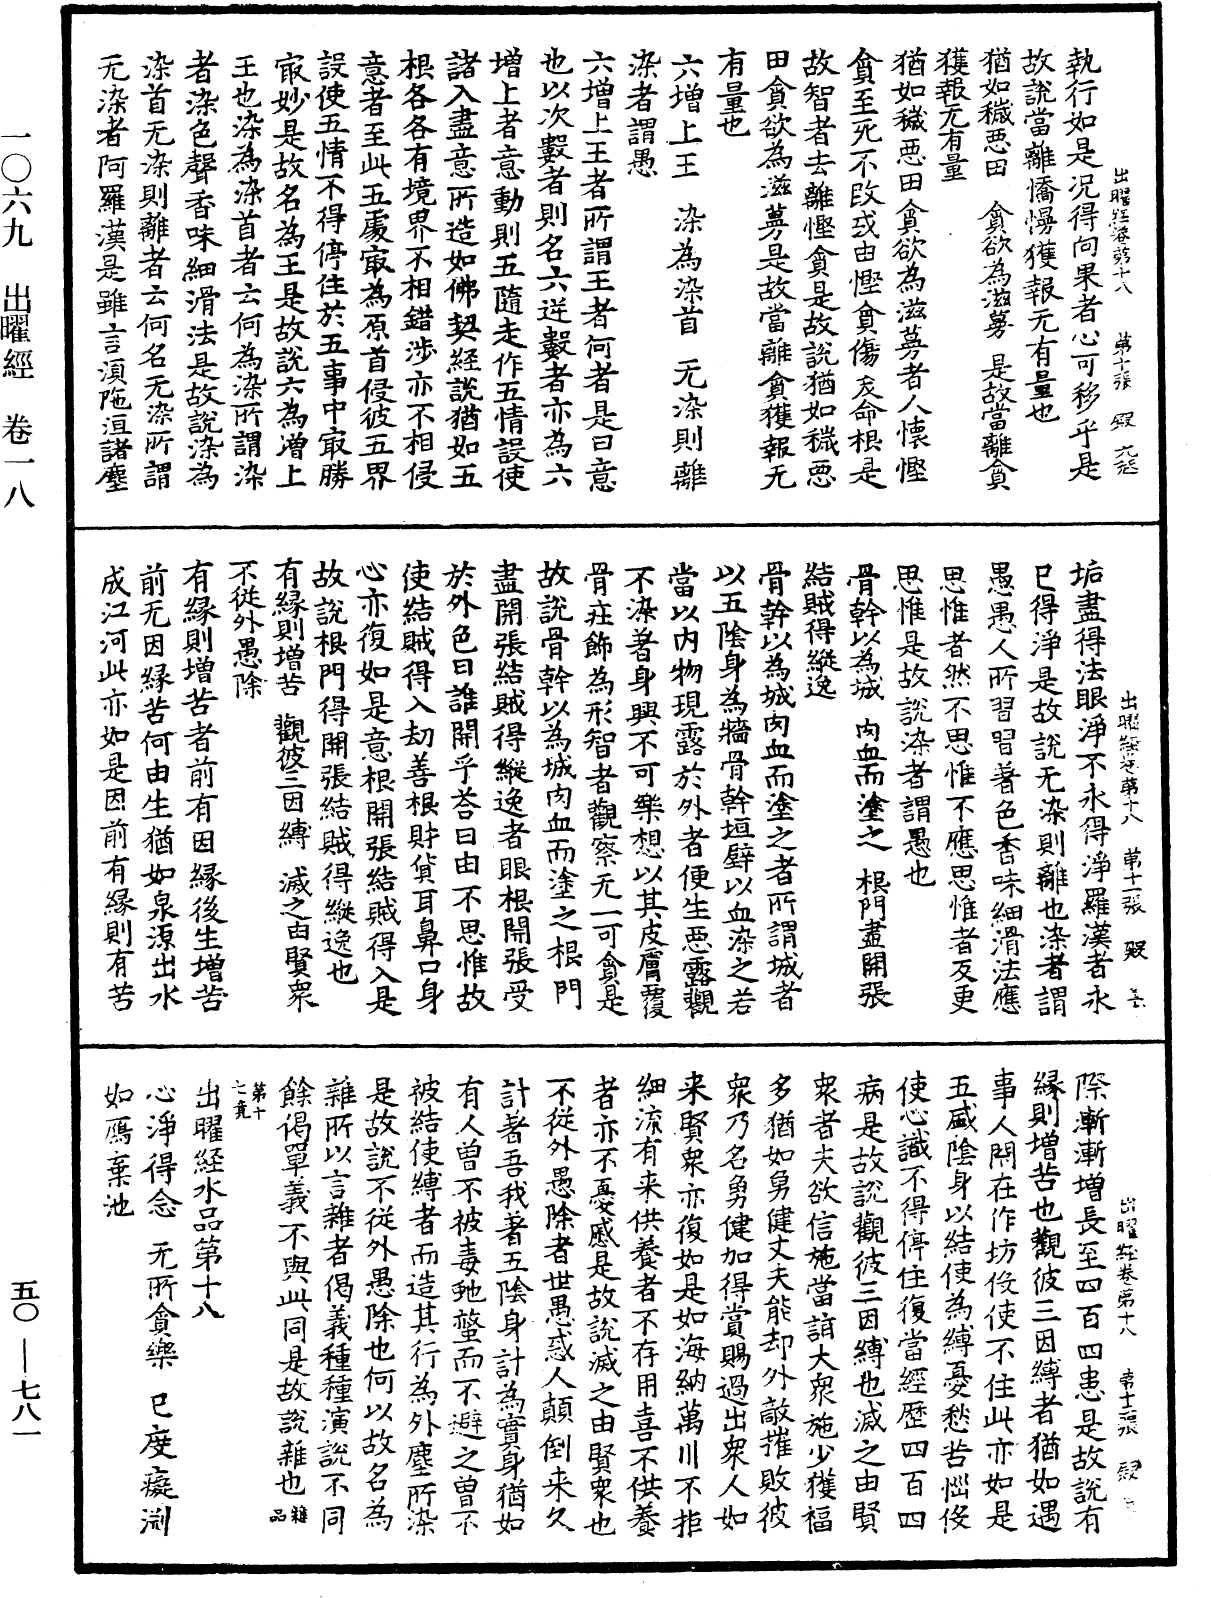 出曜經卷第十八　第十張　殿
執行如是况得向果者心可移乎是
故說當離憍慢獲報无有量也
猶如穢惡田　貪欲為滋蔓　是故當離貪
獲報无有量
猶如穢惡田貪欲為滋蔓者人懷慳
貪至死不改或由慳貪傷及命根是
故智者去離慳貪是故說猶如穢惡
田貪欲為滋蔓是故當離貪獲報无
有量也
六增上王　染為染首　无染則離
染者謂愚
六增上王者所謂王者何者是曰意
也以次數者則名六逆數者亦為六
增上者意動則五隨走作五情設使
諸入盡意所造如佛契經說猶如五
根各各有境界不相錯涉亦不相侵
意者至此五處㝡為原首侵彼五界
設使五情不得停住於五事中㝡勝
㝡妙是故名為王是故說六為增上
王也染為染首者云何為染所謂染
者染色聲香味細滑法是故說染為
染首无染則離者云何名无染所謂
无染者阿羅漢是雖言湏陁洹諸塵
出曜經卷第十八　第十一張　殿
垢盡得法眼淨不永得淨羅漢者永
已得淨是故說无染則離也染者謂
愚愚人所習習著色香味細滑法應
思惟者然不思惟不應思惟者反更
思惟是故說染者謂愚也
骨幹以為城　肉血而塗之　根門盡開張
結賊得縱逸
骨幹以為城肉血而塗之者所謂城者
以五陰身為牆骨幹垣壁以血染之若
當以內物現露於外者便生惡露觀
不染著身興不可樂想以其皮膚覆
骨莊飾為形智者觀察无一可貪是
故說骨幹以為城肉血而塗之根門
盡開張結賊得縱逸者眼根開張受
於外色曰誰開乎荅曰由不思惟故
使結賊得入劫善根財貨耳鼻口身
心亦復如是意根開張結賊得入是
故說根門得開張結賊得縱逸也
有緣則增苦　觀彼三因縛　滅之由賢衆
不從外愚除
有緣則增苦者前有因緣後生增苦
前无因緣苦何由生猶如泉源出水
成江河此亦如是因前有緣則有苦
出曜經卷第十八　第十二張　殿
際漸漸增長至四百四患是故說有
緣則增苦也觀彼三因縛者猶如遇
事人閇在作坊伇使不住此亦如是
五盛陰身以結使為縛憂愁苦惱伇
使心識不得停住復當經歷四百四
病是故說觀彼三因縛也滅之由賢
衆者夫欲信施當詣大衆施少獲福
多猶如勇健丈夫能却外敵摧敗彼
衆乃名勇健加得賞賜過出衆人如
来賢衆亦復如是如海納萬川不拒
細流有来供養者不存用喜不供養
者亦不憂慼是故說滅之由賢衆也
不從外愚除者世愚惑人顛倒来久
計著吾我著五陰身計為實身猶如
有人曾不被毒虵螫而不避之曾不
被結使縛者而造其行為外塵所染
是故說不從外愚除也何以故名為
雜所以言雜者偈義種種演說不同
餘偈單義不與此同是故說雜也雜品
第十七竟
出曜經水品第十八
心淨得念　无所貪樂　已度癡渕
如鴈棄池
一〇六九　出曜經　卷一八
五〇——七八一